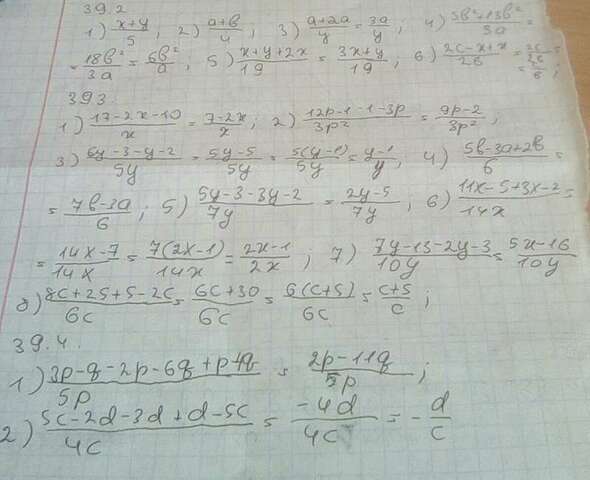 39.2
1) x+y/5; 2) a+b/4; 3) a+2a/y = 3a/y; 4) 5b²+13b²/3a =
= 18b²/3a = 6b²/a; 5) x+y+2x/19 = 3x+y/19; 6) 2c-x+x/2b = 2c/2b = c/b;
393.
1) 17-2x-10/x = 7-2x/x; 2) 12p-1-1-3p/3p² = 9p-2/3p²;
3) 6y-3-y-2/5y = 5y-5/5y = 5(y-1)/5y = y-1/y; 4) 5b-3a+2b/6 =
= 7b-3a/6; 5) 5y-3-3y-2/7y = 2y-5/7y; 6) 11x-5+3x-2/14x =
= 14x-7/14x = 7(2x-1)/14x = 2x-1/2x; 7) 7y-13-2y-3/10y = 5y-16/10y
8) 8c+25+5-2c/6c = 6c+30/6c = 6(c+5)/6c = c+5/c;
39.4.
1) 3p-q-2p-6q+p-4q/5p = 2p-11q/5p;
2) 5c-2d-3d+d-5c/4c = -4d/4c = -d/c